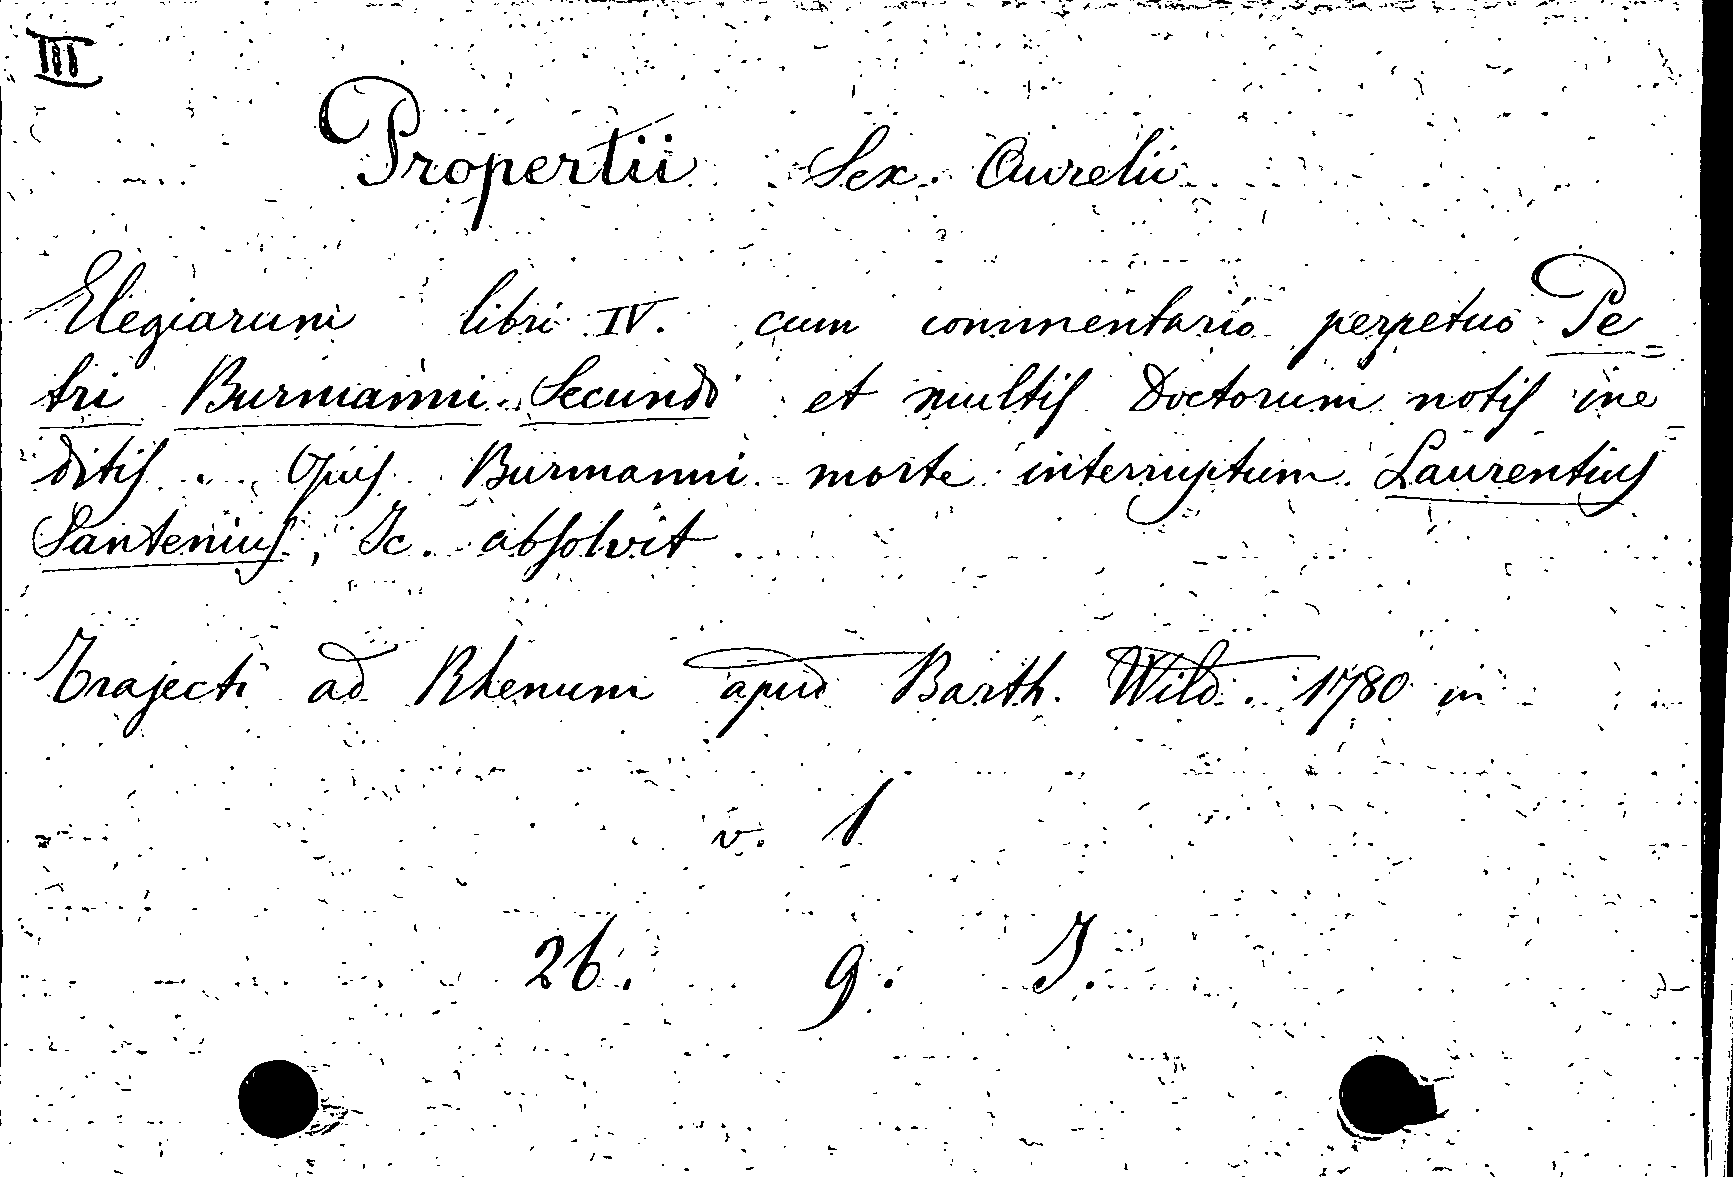 III
Propertii Sex. Aurelii
Elegiarum libri IV. cum commentario perpetuo Pe=
tri Burmanni Secundi et multis Doctorum notis ine=
ditis. Opus Burmanni morte interruptum Laurentius
Santenius, Ic. absolvit
Trajecti ad Rhenum apud Barth. Wild. 1780 in
v. 1
26. 9. I.